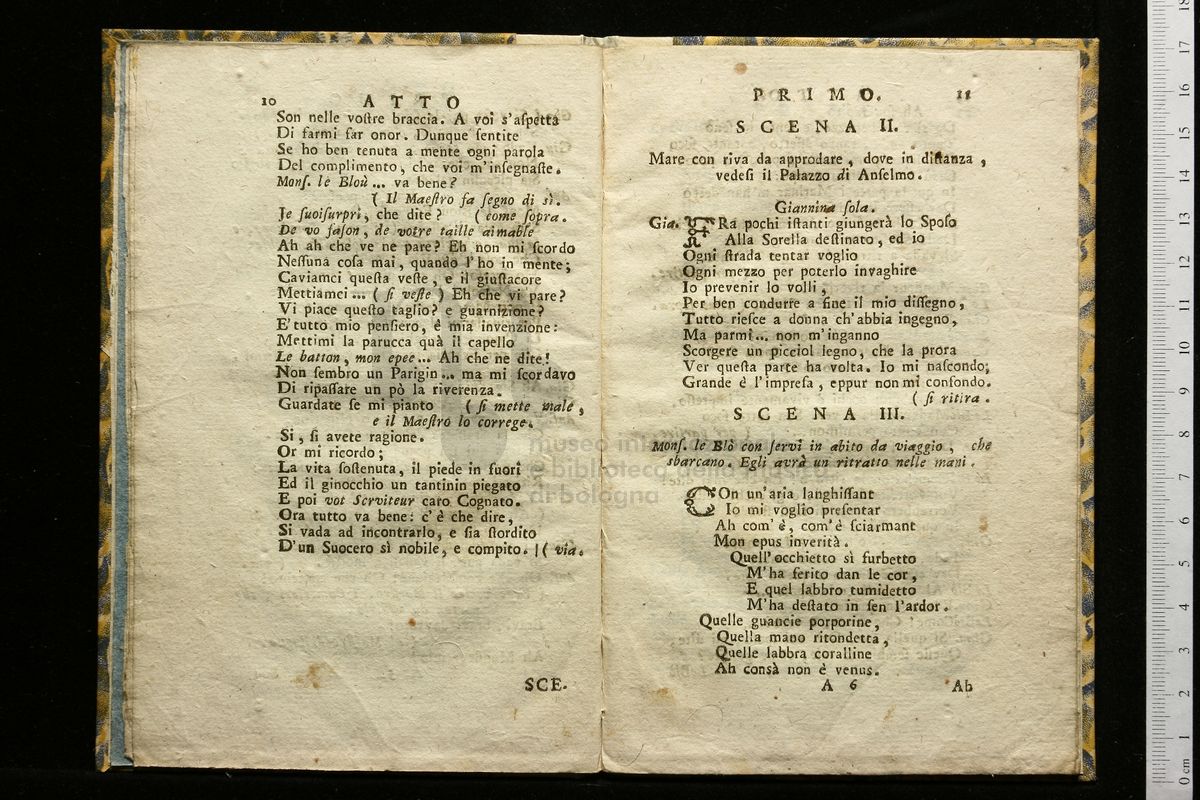 10 ATTO
Son nelle voſtre braccia. A voi s'aſpetta
Di farmi far onor. Dunque ſentite
Se ho ben tenuta a mente ogni parola
Del complimento, che voi m'inſegnaſte.
Monſ. le Bloù ... va bene?
( Il Maeſtro fa ſegno di sì.
Je ſuoiſurpri, che dite? ( come ſopra.
De vo faſon, de votre taille aimable
Ah ah che ve ne pare? Eh non mi ſcordo
Neſſuna coſa mai, quando l'ho in mente;
Caviamci queſta veſte, e il giuſtacore
Mettiamci ... ( ſi veſte ) Eh che vi pare?
Vi piace queſto taglio? e guarnizione?
E' tutto mio penſiero, è mia invenzione:
Mettimi la parucca quà il capello
Le batton, mon epee ... Ah che ne dite!
Non ſembro un Parigin ... ma mi ſcordavo
Di ripaſſare un pò la riverenza.
Guardate ſe mi pianto ( ſi mette male,
e il Maeſtro lo correge.
Si, ſi avete ragione.
Or mi ricordo;
La vita ſoſtenuta, il piede in fuori
Ed il ginocchio un tantinin piegato
E poi vot Serviteur caro Cognato.
Ora tutto va bene: c'è che dire,
Si vada ad incontrarlo, e ſia ſtordito
D'un Suocero sì nobile, e compito. ( via.
SCE-
PRIMO. 11
SCENA II.
Mare con riva da approdare, dove in diſtanza,
vedeſi il Palazzo di Anſelmo.
Giannina ſola.
Gia. FRa pochi iſtanti giungerà lo Spoſo
Alla Sorella deſtinato, ed io
Ogni ſtrada tentar voglio
Ogni mezzo per poterlo invaghire
Io prevenir lo volli,
Per ben condurre a fine il mio diſſegno,
Tutto rieſce a donna ch'abbia ingegno,
Ma parmi ... non m'inganno
Scorgere un picciol legno, che la prora
Ver queſta parte ha volta. Io mi naſcondo;
Grande è l'impreſa, eppur non mi confondo.
( ſi ritira.
SCENA III.
Monſ. le Blò con ſervi in abito da viaggio, che
sbarcano. Egli avrà un ritratto nelle mani.
COn un'aria langhiſſant
Io mi voglio preſentar
Ah com'è, com'è ſciarmant
Mon epus inverità.
Quell'occhietto sì furbetto
M'ha ferito dan le cor,
E quel labbro tumidetto
M'ha deſtato in ſen l'ardor.
Quelle guancie porporine,
Quella mano ritondetta,
Quelle labbra coralline
Ah consà non è venus.
A 6 Ah
museo in
e biblioteca della musica
di bologna
18
17
16
15
14
13
12
11
10
9
8
7
6
5
4
3
2
1
0 cm